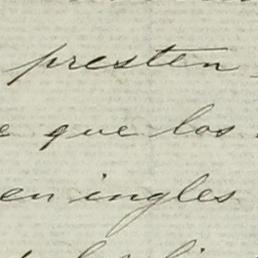 presten-
que los
en ingles